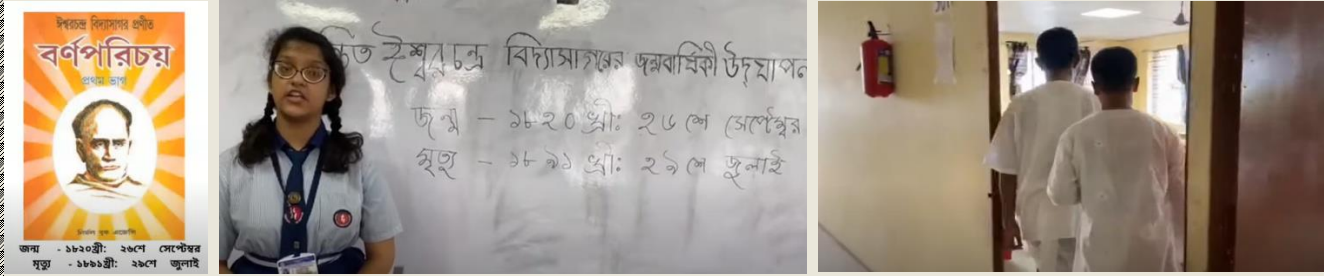 ঈশ্বরচন্দ্র বিদ্যাসাগর প্রণীত
বর্ণপরিচয়
প্রথম ভাগ
জন্ম - ১৮২০খ্রী: ২৬শে সেপ্টেম্বর
মৃত্যু - ১৮৯১খ্রী: ২৯শে জুলাই
ঈশ্বরচন্দ্র বিদ্যাসাগরের জন্মবার্ষিকী উদ্‌যাপন
জন্ম - ১৮২০ খ্রী: ২৬ শে সেপ্টেম্বর
মৃত্যু - ১৮৯১ খ্রী: ২৯ শে জুলাই